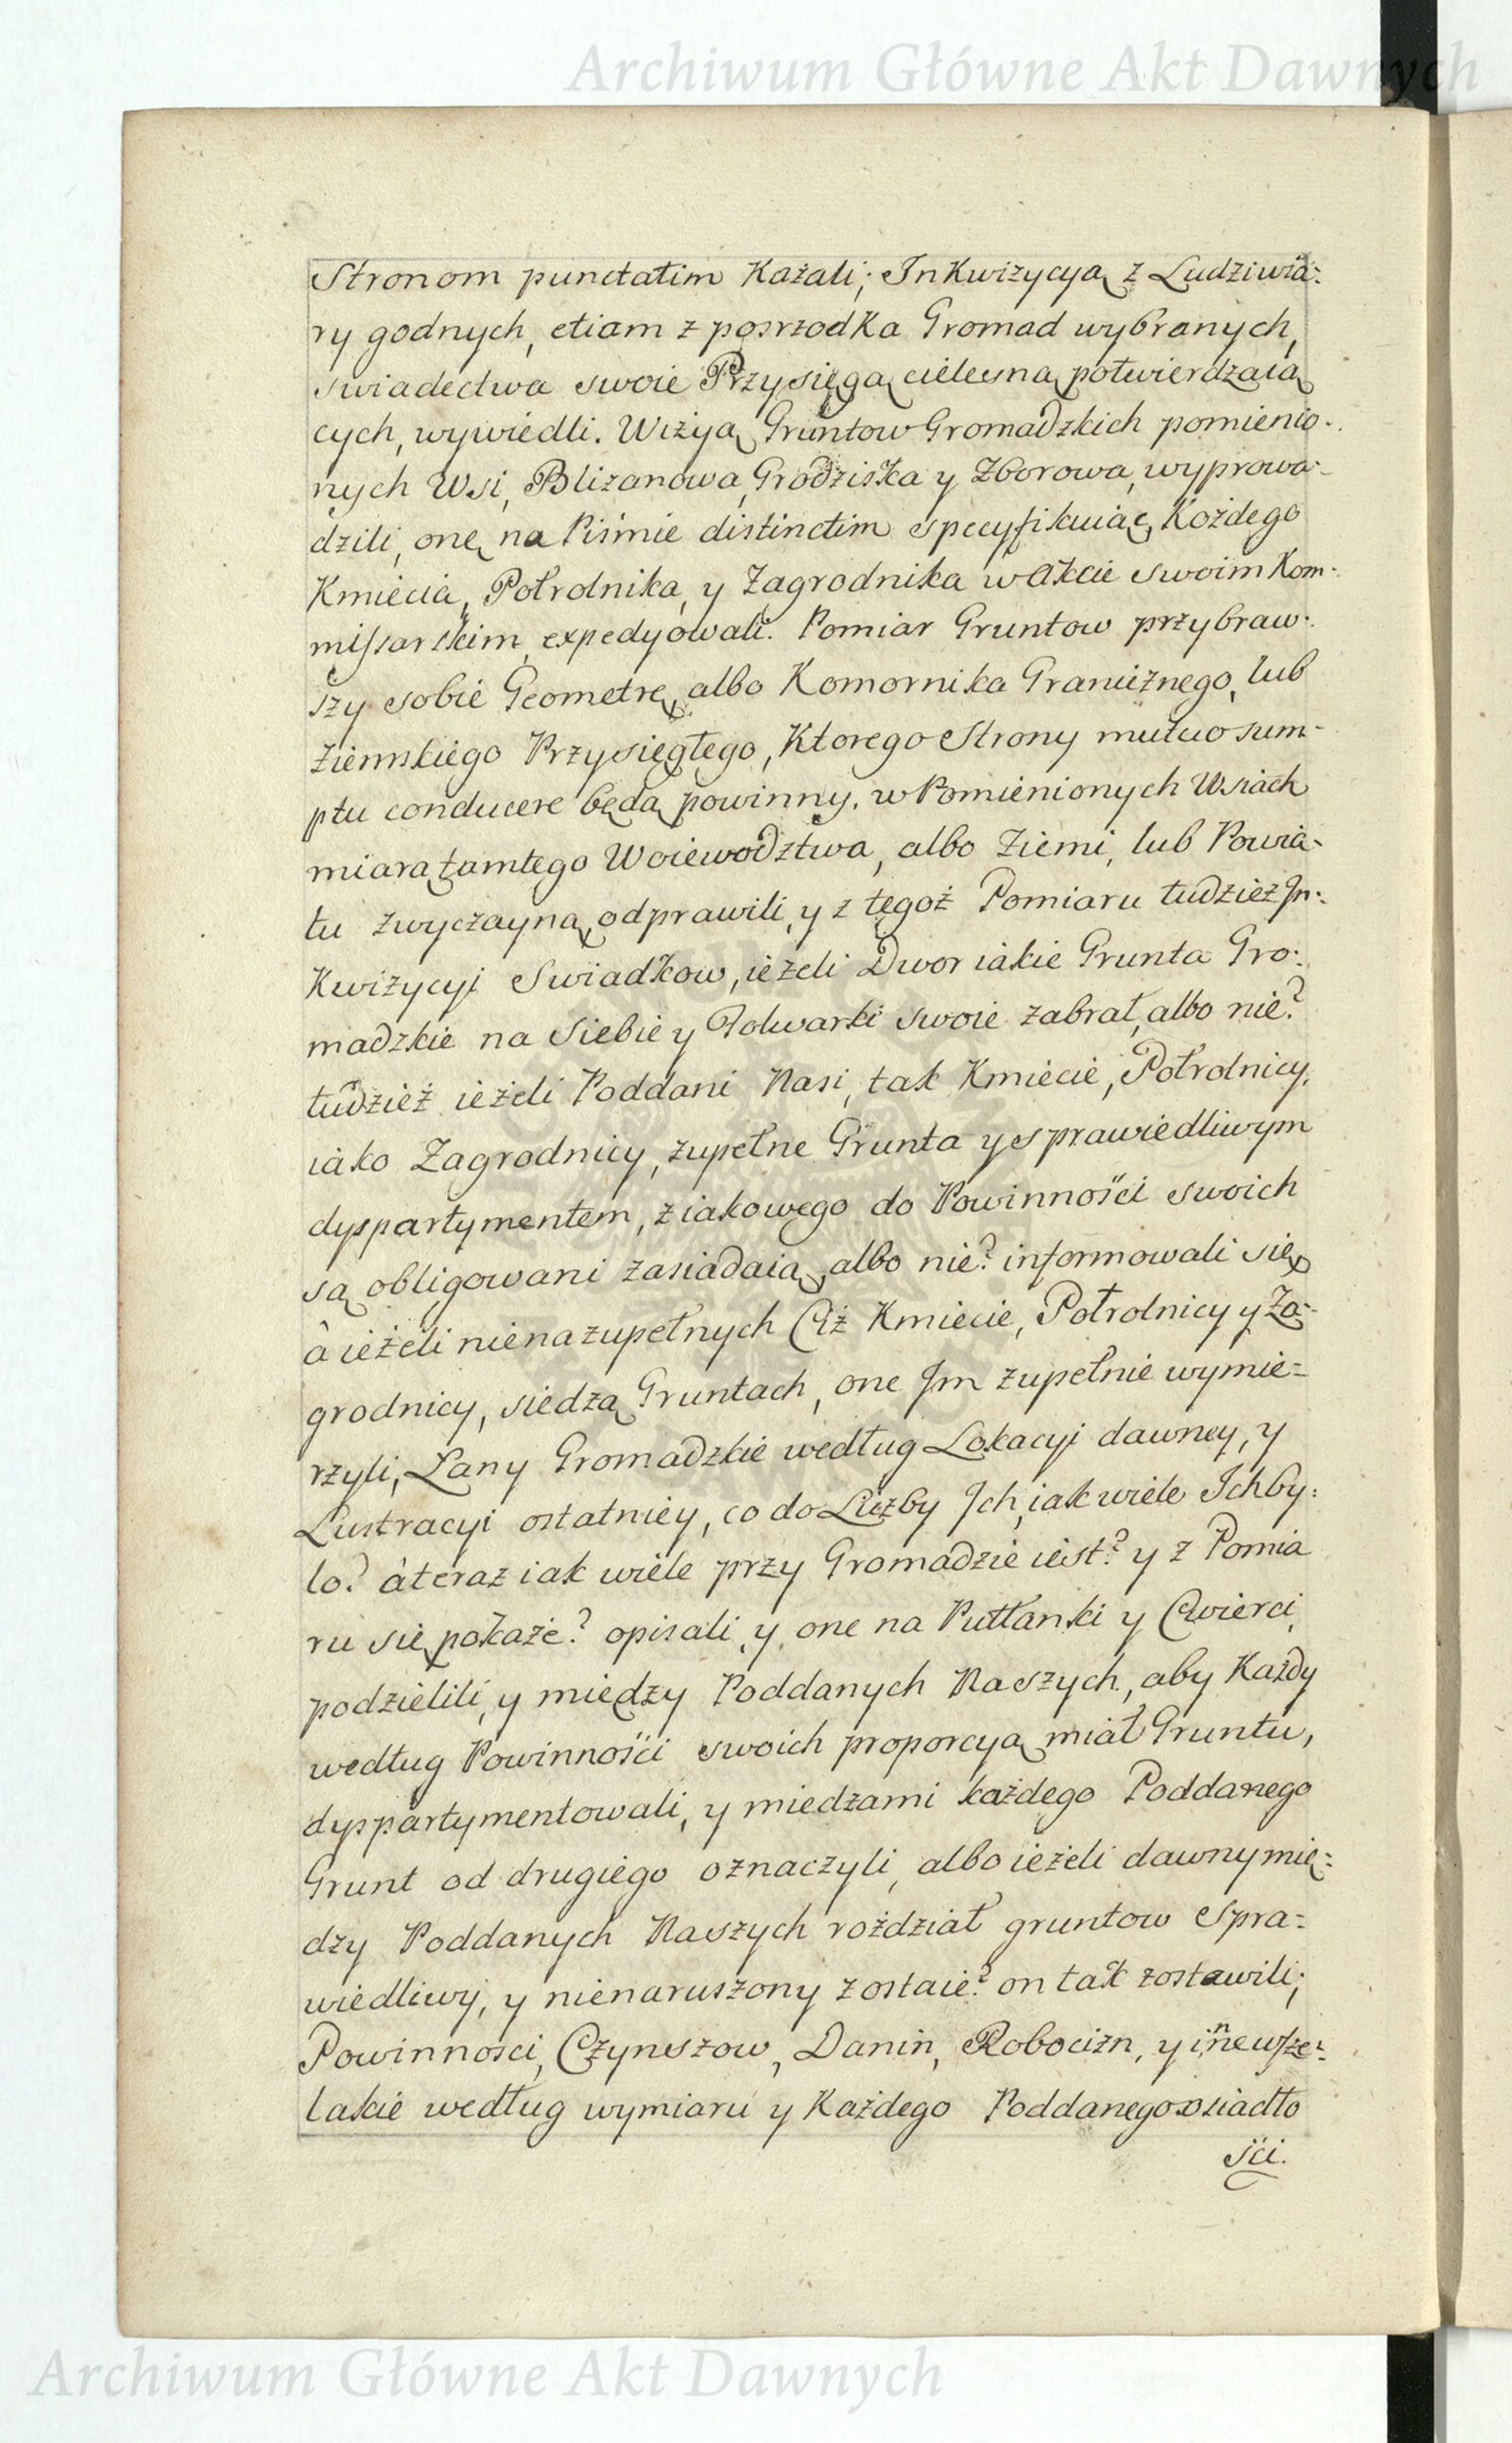 Archiwum Główne Akt Dawnych
Stronom punctatim Kazali; InKwizycyą z Ludzi wia:
ry godnych, etiam z posrzodKa Gromad wybranych,
swiadectwa swoie Przysięgą cielesną potwierdzaią
cych, wywiedli. Wizyą Gruntow Gromadzkich pomienio:
nych Wsi, Blizanowa, Grodziska y Zborowa, wyprowa:
dzili, onę na Piśmie distinctim specyfikuiąc, Kożdego
Kmiecia, Połrolnika, y Zagrodnika w Akcie swoim Kom:
missarskim, expedyowali. Pomiar Gruntow przybraw:
szy sobie Geometrę, albo Komornika Granicznego, lub
Ziemskiego Przysięgłego, Ktorego Strony mutuo sum:
ptu conducere będą powinny, w Pomienionych Wsiach
miarą tamtego Woiewodztwa, albo Ziemi, lub Powia:
tu zwyczayną, odprawili, y z tegoż Pomiaru tudziez In:
Kwizycyi Swiadkow, ieżeli Dwor iakie Grunta Gro:
madzkie na Siebie y Folwarki swoie zabrał, albo nie?
tudzież ieżeli Poddani Nasi, tak Kmiecie, Połrolnicy,
iako Zagrodnicy, zupełne Grunta y sprawiedliwym
dyspartymentem, z iakowego do Powinności swoich
są obligowani zasiadaią, albo nie? informowali się,
à ieżeli nie na zupełnych Ciż Kmiecie, Połrolnicy y Za:
grodnicy, siedzą Gruntach, one Im zupełnie wymie=
rzyli, Łany Gromadzkie według Lokacyi dawney, y
Lustracyi ostatniey, co do Liczby Ich, iak wiele Ich by:
lo? à teraz iak wiele przy Gromadzie iest? y z Pomia
ru się pokaże? opisali, y one na Pułłanki y Cwierci,
podzielili, y między Poddanych Naszych, aby Każdy
według Powinności swoich proporcyą miał Gruntu,
dyspartymentowali, y miedzami każdego Poddanego
Grunt od drugiego oznaczyli, albo ieżeli dawny mię=
dzy Poddanych Naszych rozdział gruntow spra=
wiedliwy, y nienaruszony zostaie? on tak zostawili;
Powinnosci, Czynszow, Danin, Robocizn, y inne wsze:
lakie według wymiaru y Każdego Poddanego osiadło
ści.
Archiwum Główne Akt Dawnych